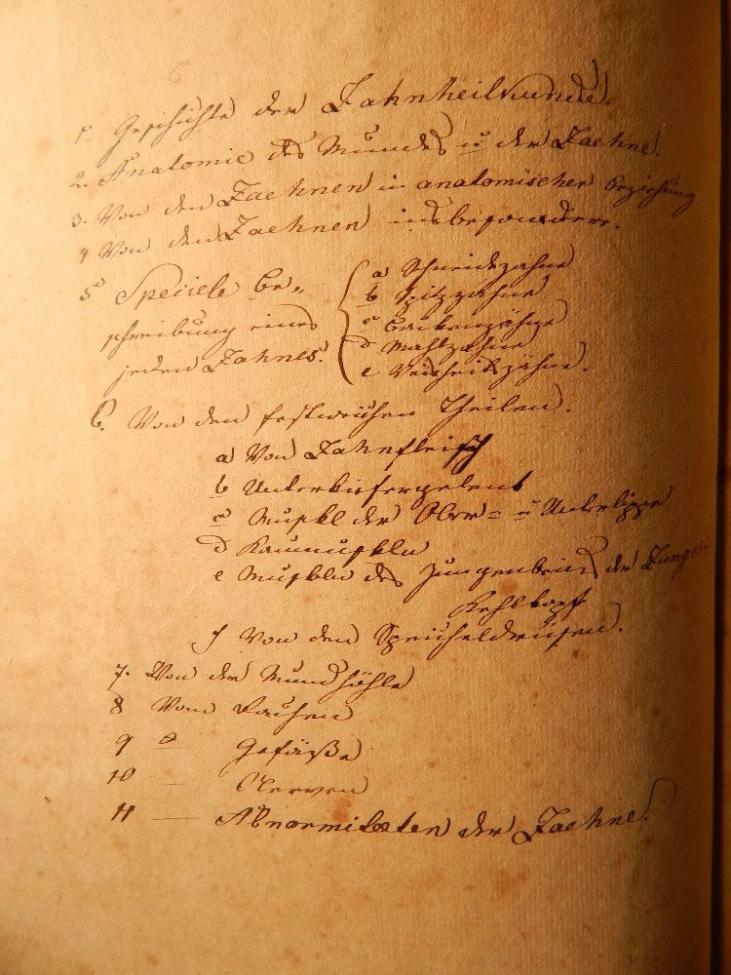 1. Geschichte der Zahnheilkunde.
2. Anatomie des Mundes u der Zaehne.
3. Von den Zaehnen in anatomischer Beziehung
4 Von den Zaehnen insbesondere.
5 Speciele Be-
schreibung eines
jeden Zahnes.
a Schneidezähne
b Spitzzähne
c Backenzähne
d Mahlzähne
e Weisheitszähne.
6. Von den festweichen Theilen.
a Von Zahnfleisch
b Unterkiefergelenk
c Muskel der Ober- u Unterlippe
d Kaumuskeln
e Muskeln des Zungenbeins der Zunge
Kehlkopf
f Von den Speicheldrüsen.
7. Von der Mundhöhle
8 Vom Rachen
9 — Gefäße
10 — Nerven
11 — Abnormitaeten der Zaehne.